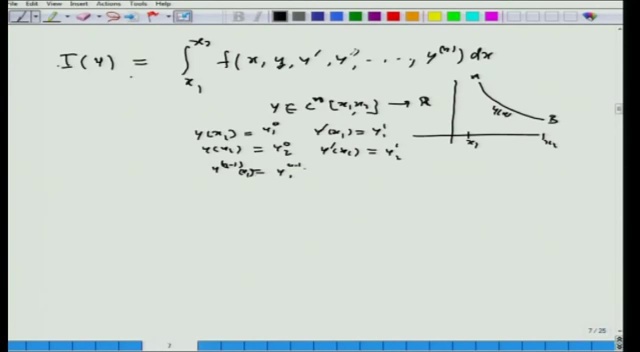 File View Insert Actions Tools Help
I(y) = ∫_{x₁}^{x₂} f(x, y, y', y'', ...., y^{(n)}) dx
y ∈ Cⁿ[x₁ x₂] → ℝ
y(x₁) = y₁⁰ y'(x₁) = y₁'
y(x₂) = y₂⁰ y'(x₂) = y₂'
y^{(n-1)}(x₁) = y₁^{n-1}
A
y(x)
B
x₁ x₂
7 / 25
7